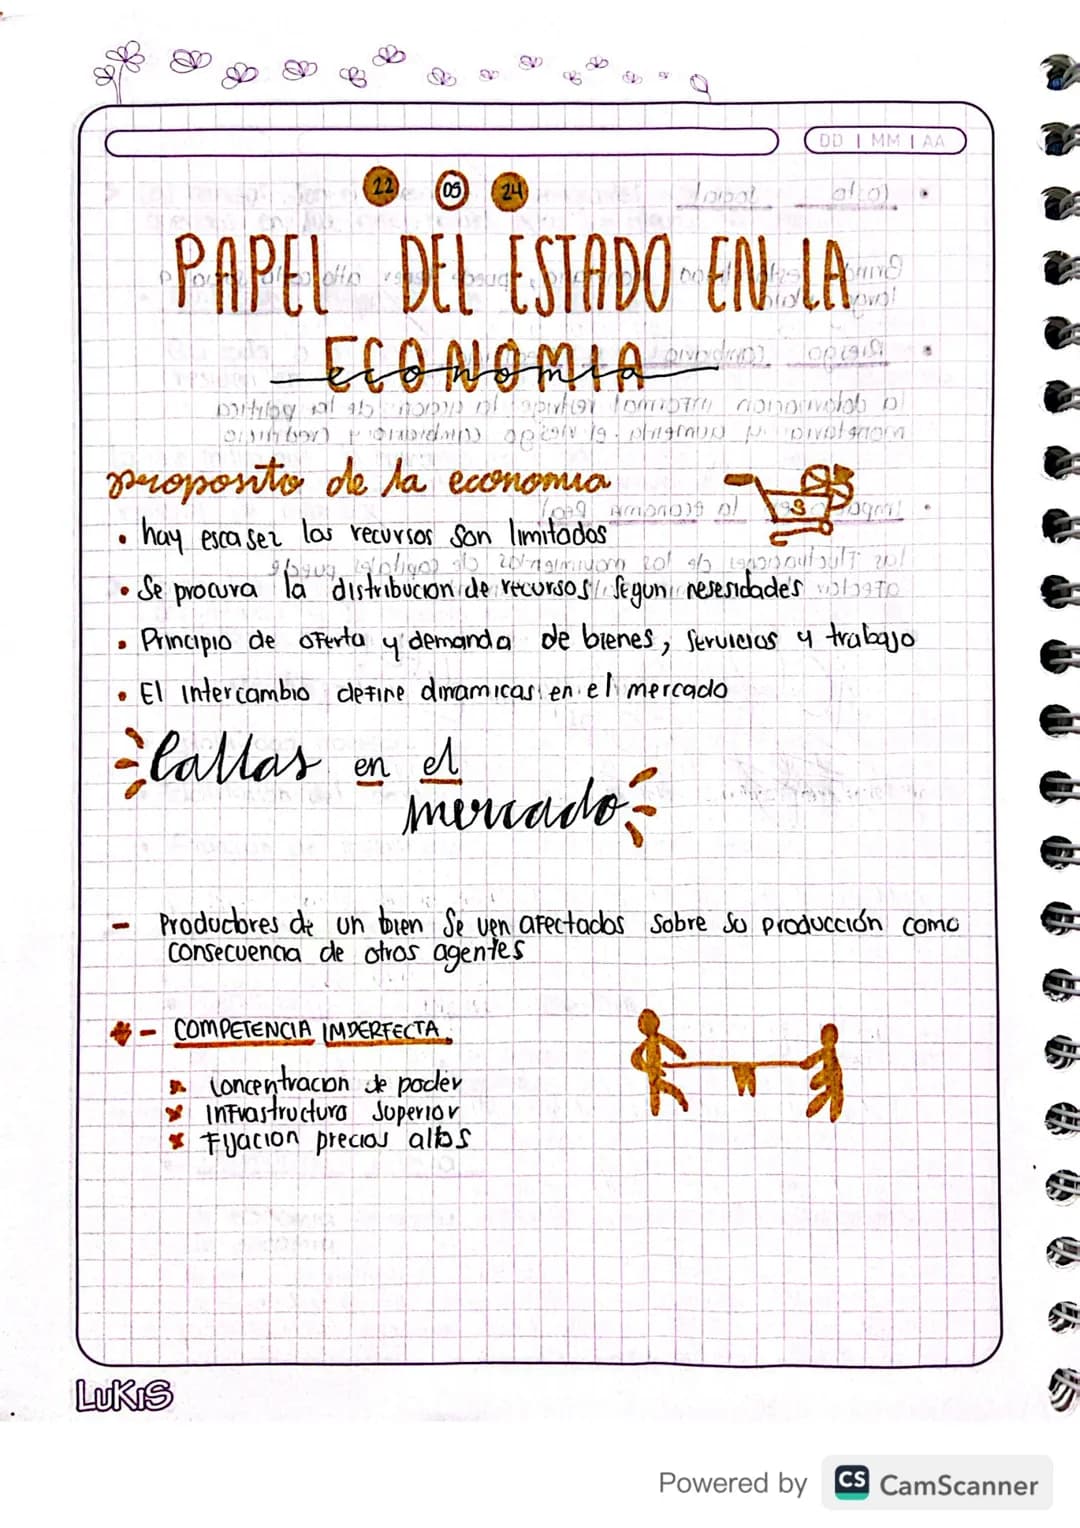 DD | MM | AA
22 05 24
PAPEL DEL ESTADO EN LA
ECONOMIA
proposito de la economia
$
• hay escasez los recursos son limitados
• Se procura la distribucion de recursos Segun nesesidades
• Principio de oferta y demanda de bienes, Servicios y trabajo
• El Intercambio define dinamicas en el mercado
fallas en el
mercado
- Productores de un bien Se ven afectados Sobre Su producción como
consecuencia de otros agentes
* - COMPETENCIA IMPERFECTA
x Concentracion de poder
x Infraestructura Superior
x Fijacion precios altos
LUKIS
Powered by CS CamScanner